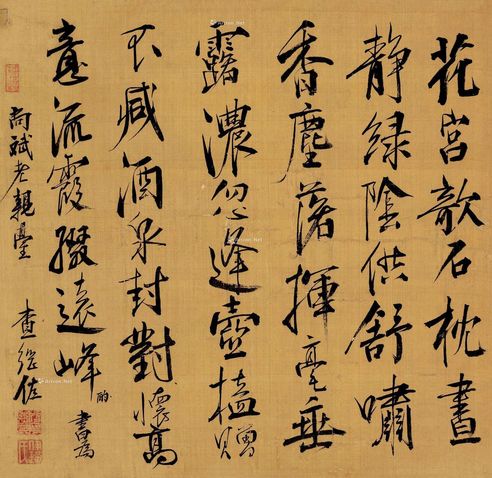 花宮欹石枕晝
静緑陰供舒嘯
香塵落揮毫垂
露濃忽逢壺榼贈
不減酒泉封對懷高
意流霞綴遠峰 酌 書為
尚斌老親臺
查繼佐